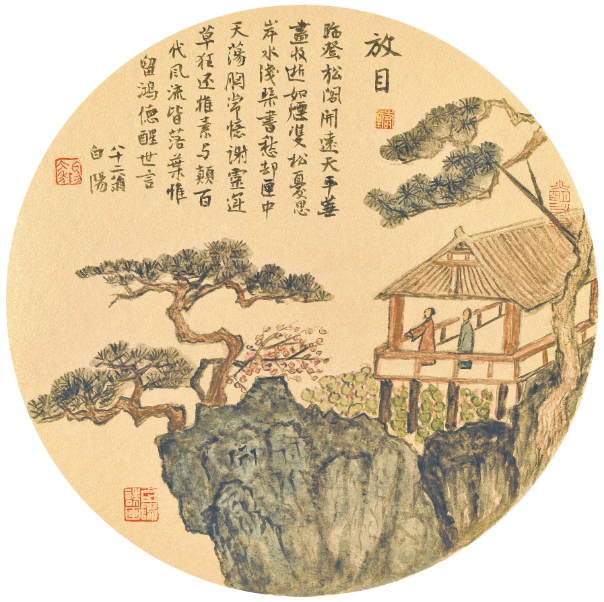 放目
登松阁開遠天平蕪
盡收逝如煙雙松憂思
岸水淺琹書愁却匣中
天蕩胸常憶謝靈運
草狂还推素与顛百
代风流皆落葉惟
留鴻德醒世言
八十二翁
白陽